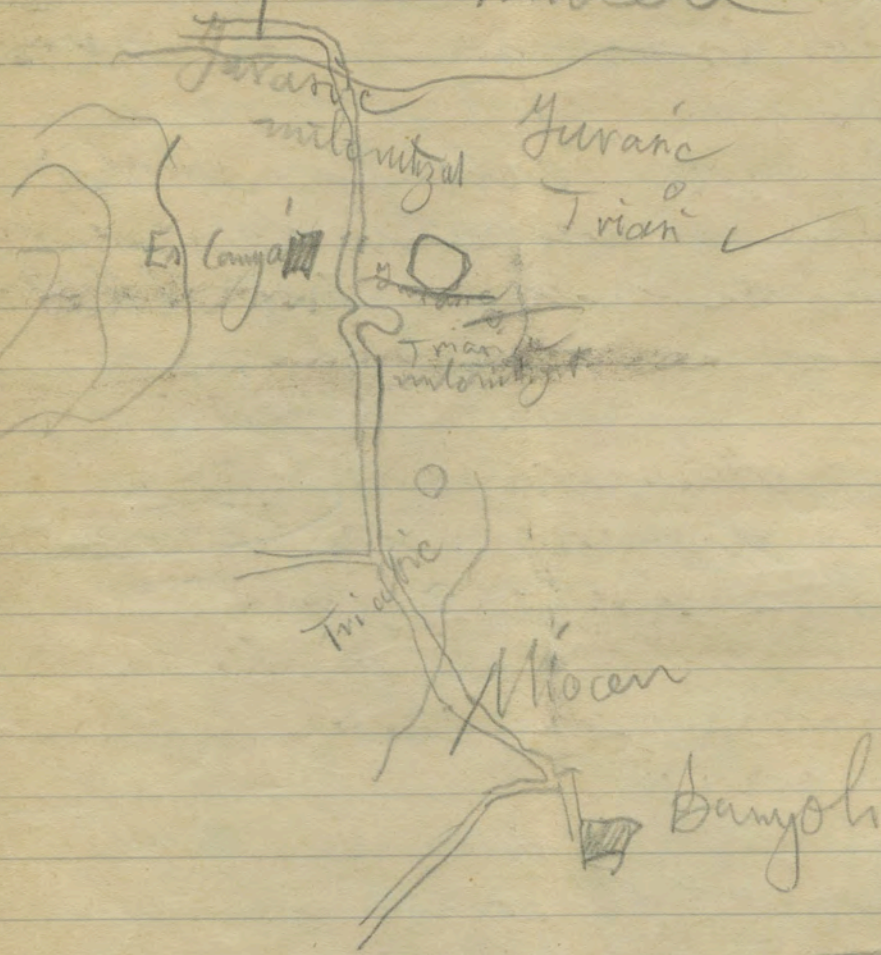 Jurasic
milonitzat
Juràsic
o
Trias
Es Canyà
Jurasic
o
Trias
milonitzat
Triasic
Miocen
Banyols